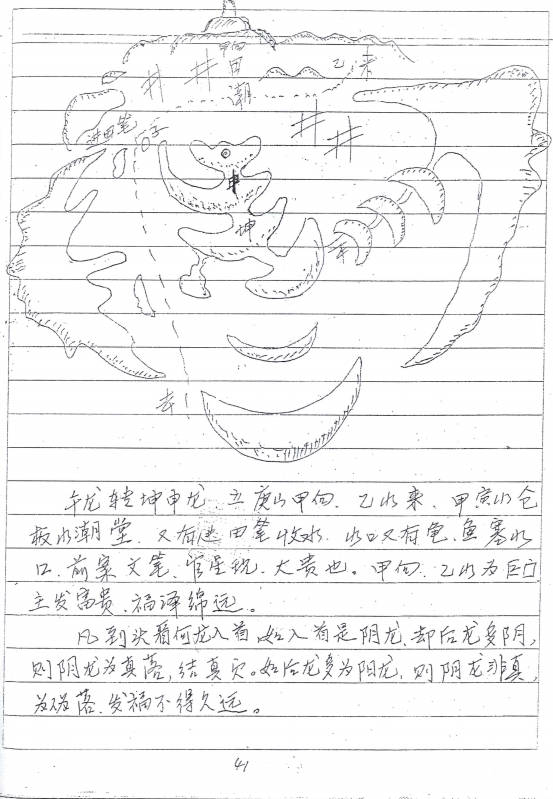 甲向
甲
潮
乙
来
进田笔
子
申
坤
午
去
午龙转坤申龙 立庚山甲向. 乙水来. 甲寅水仓
板水潮堂. 又有进田笔收水. 水口又有龟.鱼塞水
口. 前案文笔. 官星现. 大贵也. 甲向. 乙水为巨门
主发富贵. 福泽绵远。
凡到次看何龙入首, 如入首是阴龙. 却后龙多阴,
则阴龙为真落, 结真穴。如后龙多为阳龙. 则阴龙非真,
为 落. 发福不得久远。
41